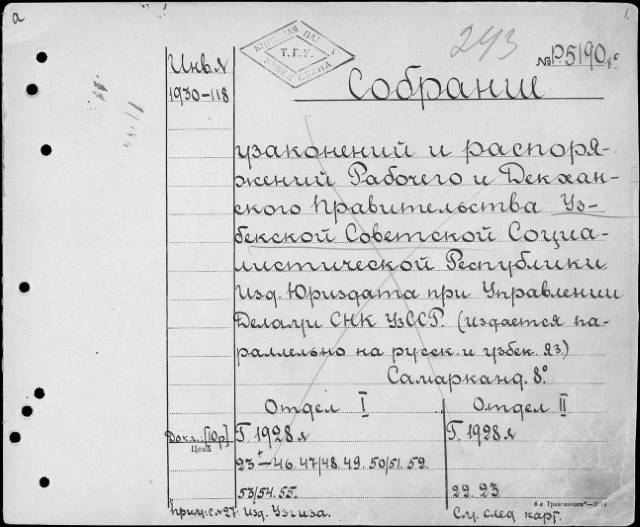 а
293
№ Р5190 8°
КНИЖНАЯ ПАЛ
Т.Г.У.
УЗБЕКИСТАНА
Инв я
1930–118
Собрание
узаконений и распоря-
жений Рабочего и Декхан-
ского Правительства Уз-
бекской Советской Социа-
листической Республики
Изд. Юриздата при Управлении
Делами СНК УзССР. (издается па-
раллельно на русск. и узбек. яз.)
Самарканд. 8°
Отдел I
Отдел II
Докл: [Юр]
Цена
Г. 1928 я
Г. 1928 я
23+–46. 47/48. 49. 50/51. 52.
53/54. 55.
22. 23
прим: с №27 Изд. Узгиза.
См. след карт.